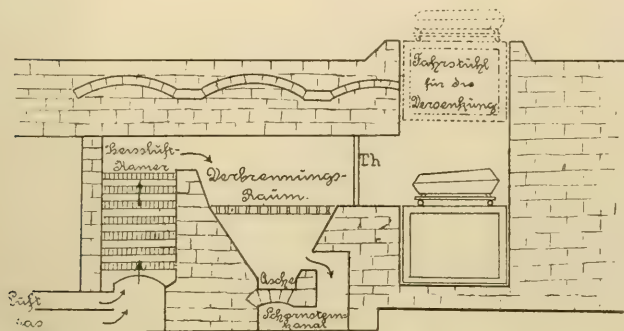 Fahrstuhl
für die
Versenkung
Heissluft-
Kamer
Verbrennungs-
Raum.
Th
Asche
Schornstein
kanal
Luft
Gas